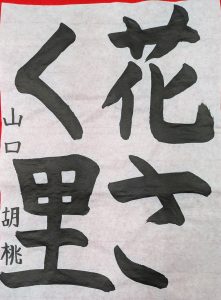 花さ
く里
山口 胡桃